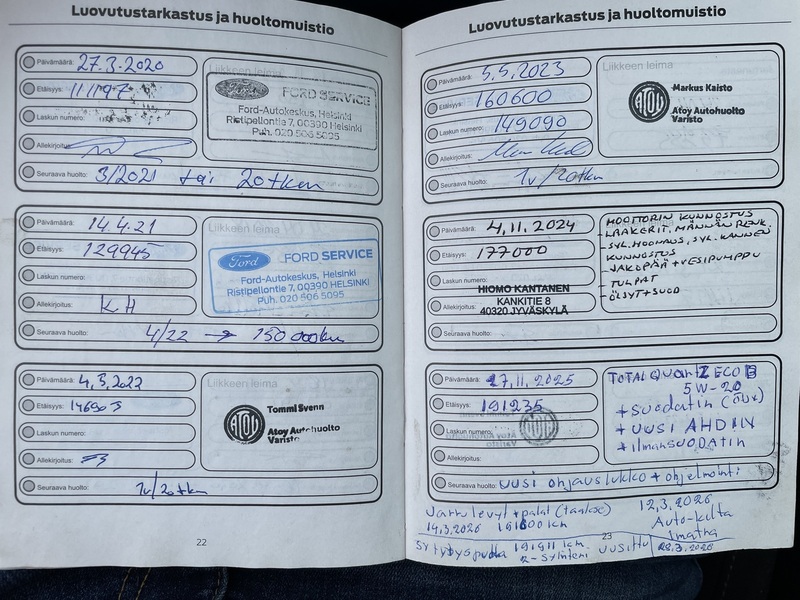 Luovutustarkastus ja huoltomuistio
Päivämäärä: 27.3.2020
Etäisyys: 111197
Laskun numero:
Allekirjoitus:
Seuraava huolto: 3/2021 tai 20tkm
Liikkeen leima
Ford FORD SERVICE
Ford-Autokeskus, Helsinki
Ristipellontie 7, 00390 Helsinki
Puh. 020 506 5095
Päivämäärä: 14.4.21
Etäisyys: 129945
Laskun numero:
Allekirjoitus: KH
Seuraava huolto: 4/22 → 150 000km
Liikkeen leima
Ford FORD SERVICE
Ford-Autokeskus, Helsinki
Ristipellontie 7, 00390 HELSINKI
Puh. 020 506 5095
Päivämäärä: 4.3.2022
Etäisyys:
Laskun numero:
Allekirjoitus:
Seuraava huolto: 1v/20tkm
Liikkeen leima
ATOY
Tommi Svenn
Atoy Autohuolto
Varisto
22
Luovutustarkastus ja huoltomuistio
Päivämäärä: 5.5.2023
Etäisyys: 160600
Laskun numero: 149090
Allekirjoitus:
Seuraava huolto: 1v/20tkm
Liikkeen leima
ATOY
Markus Kaisto
Atoy Autohuolto
Varisto
Päivämäärä: 4.11.2024
Etäisyys: 177000
Laskun numero:
Allekirjoitus:
HIOMO KANTANEN
KANKITIE 8
40320 JYVÄSKYLÄ
Seuraava huolto:
MOOTTORIN KUNNOSTUS
- LAAKERIT, MÄNNÄNRENK.
- SYL.HOONAUS, SYL.KANNEN
KUNNOSTUS
- JAKOPÄÄ + VESIPUMPPU
- TULPAT
- ÖLJYT + SUOD
Päivämäärä: 17.11.2025
Etäisyys: 191235
Laskun numero:
Allekirjoitus:
Seuraava huolto: uusi ohjauslukko + ohjelmointi
TOTAL QuartZ ECO B
5W-20
+ suodatin (öljy)
+ uusi AHDIN
+ ilmansuodatin
Jarrulevyt + palat (taakse)
14.3.2026 191600 km
12.3.2026
Auto-kilta
Imatra
23
Sytytyspuola 191911 km uusittu
2-sylinteri
22.3.2026